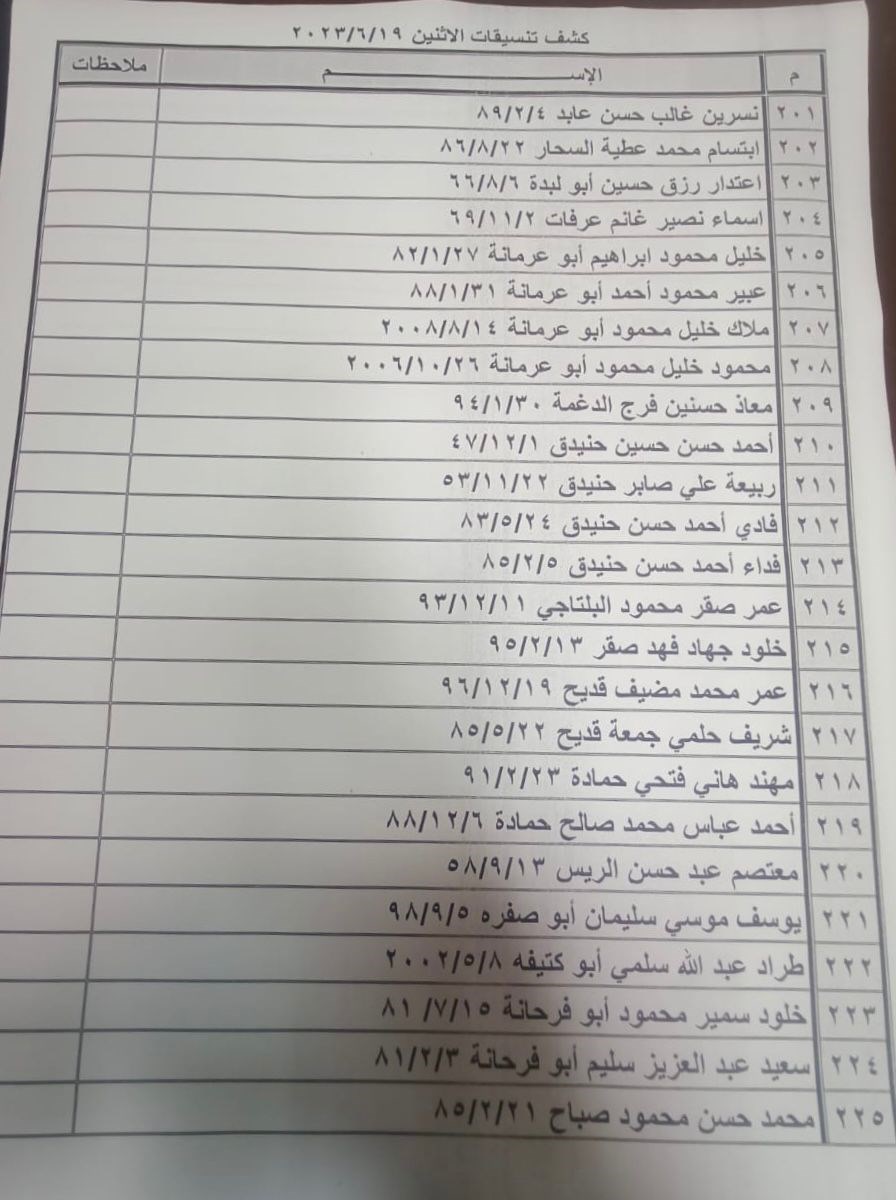 كشف تنسيقات الاثنين ٢٠٢٣/٦/١٩
م الإســـــــــــم ملاحظات
٢٠١ نسرين غالب حسن عابد ٨٩/٢/٤
٢٠٢ ابتسام محمد عطية السحار ٨٦/٨/٢٢
٢٠٣ اعتدار رزق حسين أبو لبدة ٦٦/٨/٦
٢٠٤ اسماء نصير غانم عرفات ٦٩/١١/٢
٢٠٥ خليل محمود ابراهيم أبو عرمانة ٨٢/١/٢٧
٢٠٦ عبير محمود أحمد أبو عرمانة ٨٨/١/٣١
٢٠٧ ملاك خليل محمود أبو عرمانة ٢٠٠٨/٨/١٤
٢٠٨ محمود خليل محمود أبو عرمانة ٢٠٠٦/١٠/٢٦
٢٠٩ معاذ حسنين فرج الدغمة ٩٤/١/٣٠
٢١٠ أحمد حسن حسين حنيدق ٤٧/١٢/١
٢١١ ربيعة علي صابر حنيدق ٥٣/١١/٢٢
٢١٢ فادي أحمد حسن حنيدق ٨٣/٥/٢٤
٢١٣ فداء أحمد حسن حنيدق ٨٥/٢/٥
٢١٤ عمر صقر محمود البلتاجي ٩٣/١٢/١١
٢١٥ خلود جهاد فهد صقر ٩٥/٢/١٣
٢١٦ عمر محمد مضيف قديح ٩٦/١٢/١٩
٢١٧ شريف حلمي جمعة قديح ٨٥/٥/٢٢
٢١٨ مهند هاني فتحي حمادة ٩١/٢/٢٣
٢١٩ أحمد عباس محمد صالح حمادة ٨٨/١٢/٦
٢٢٠ معتصم عبد حسن الريس ٥٨/٩/١٣
٢٢١ يوسف موسي سليمان أبو صفره ٩٨/٩/٥
٢٢٢ طراد عبد الله سلمي أبو كتيفه ٢٠٠٢/٥/٨
٢٢٣ خلود سمير محمود أبو فرحانة ٨١ /٧/١٥
٢٢٤ سعيد عبد العزيز سليم أبو فرحانة ٨١/٢/٣
٢٢٥ محمد حسن محمود صباح ٨٥/٢/٢١